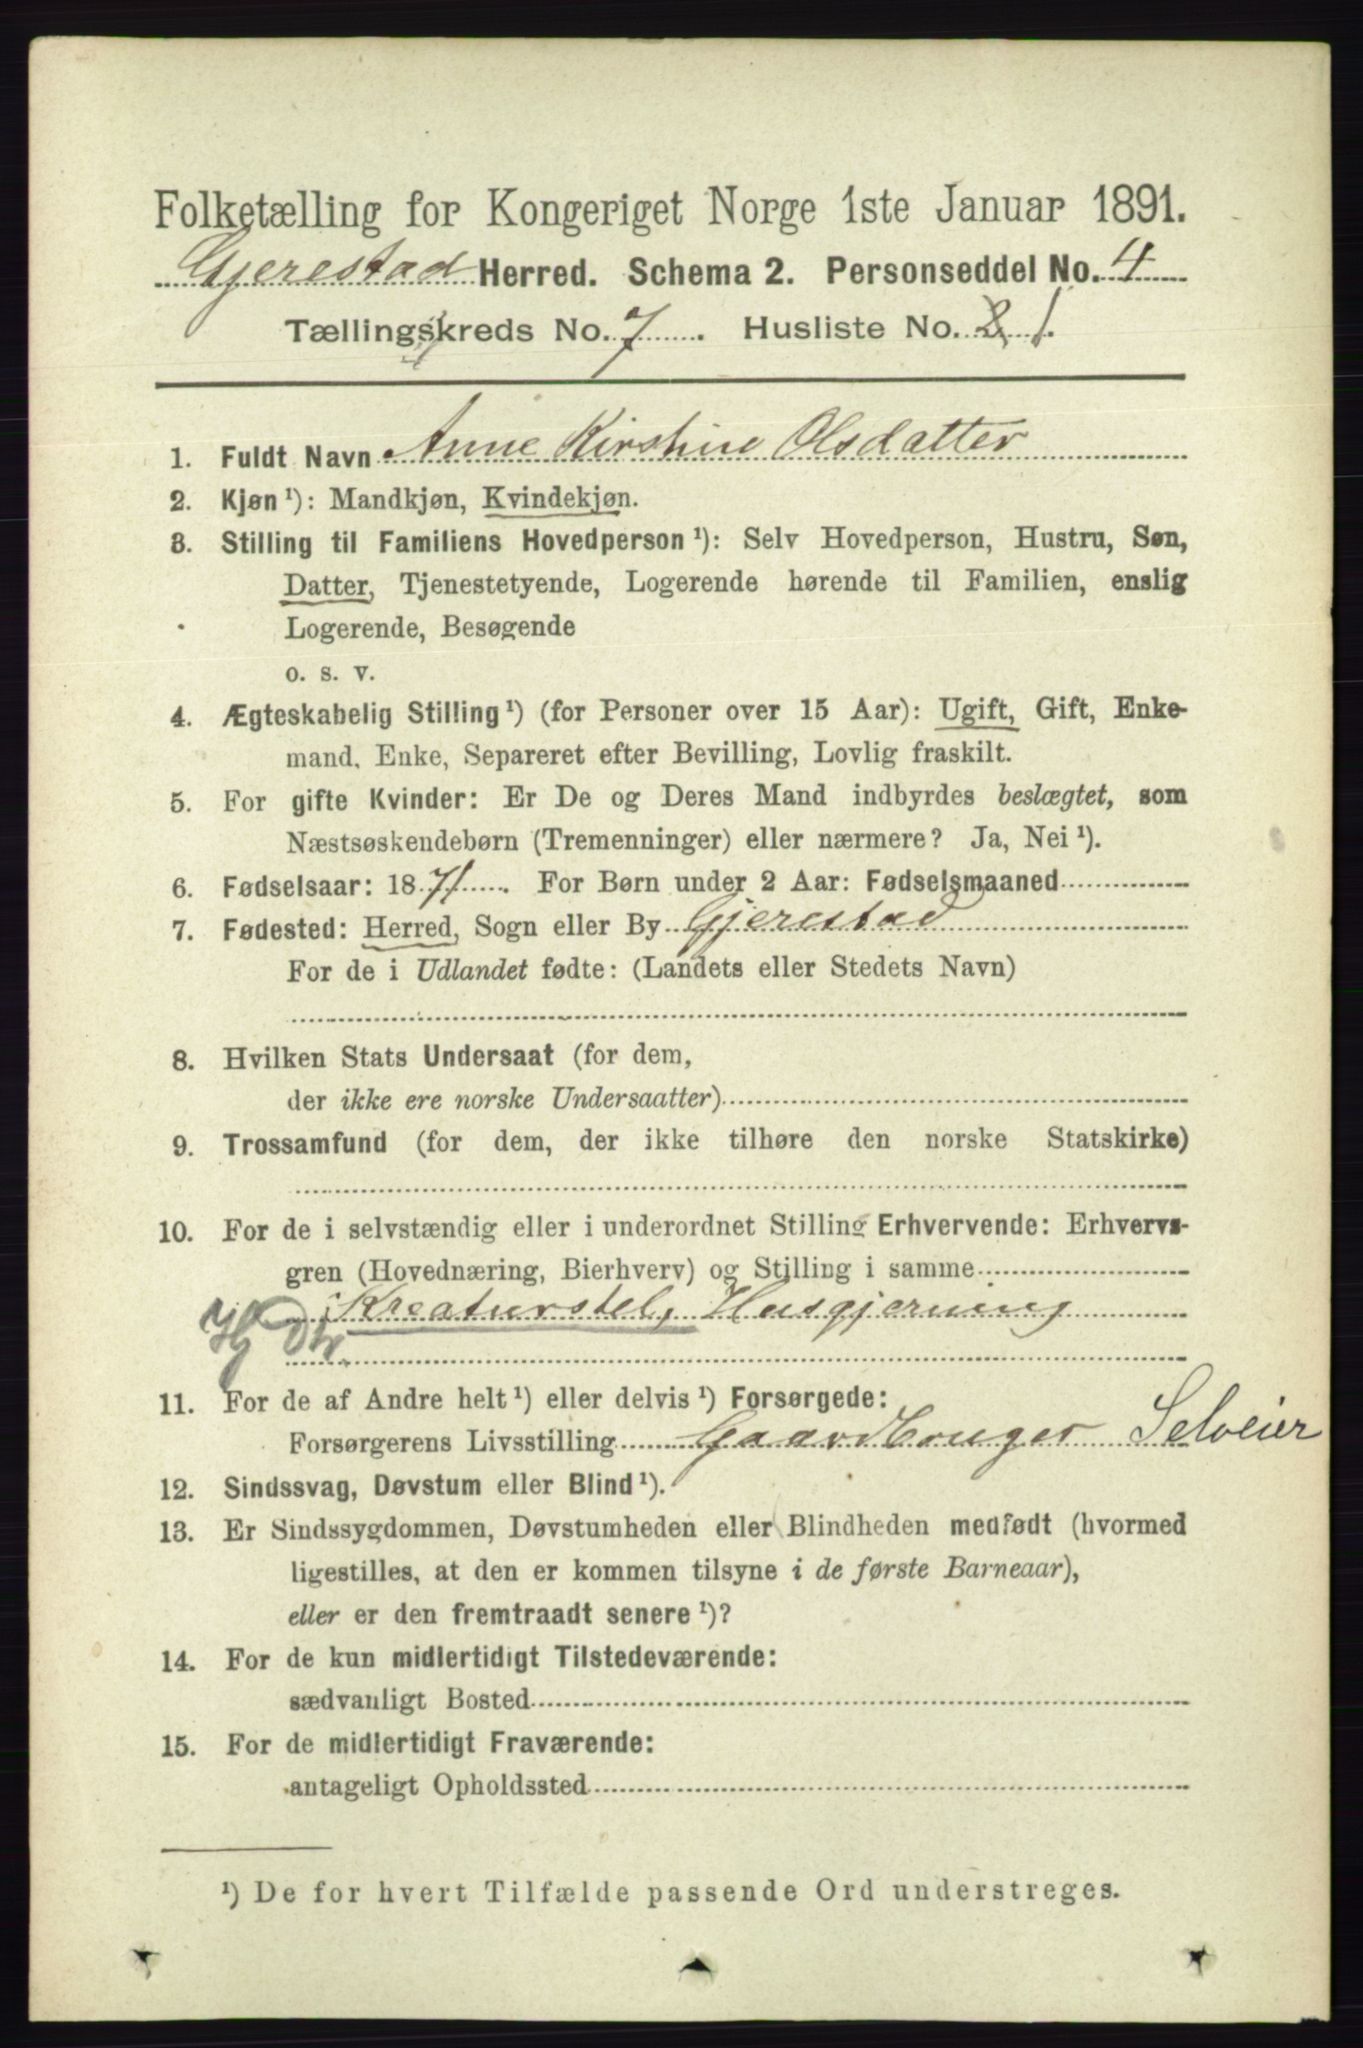 Folketælling for Kongeriget Norge 1ste Januar 1891.
Gjerestad Herred. Schema 2. Personseddel No. 4
Tællingskreds No. 7. Husliste No. 2 1.
1. Fuldt Navn Anne Kirstine Olsdatter
2. Kjøn ¹): Mandkjøn, Kvindekjøn.
3. Stilling til Familiens Hovedperson ¹): Selv Hovedperson, Hustru, Søn,
Datter, Tjenestetyende, Logerende hørende til Familien, enslig
Logerende, Besøgende
o. s. v.
4. Ægteskabelig Stilling ¹) (for Personer over 15 Aar): Ugift, Gift, Enke-
mand, Enke, Separeret efter Bevilling, Lovlig fraskilt.
5. For gifte Kvinder: Er De og Deres Mand indbyrdes beslægtet, som
Næstsøskendebørn (Tremenninger) eller nærmere? Ja, Nei ¹).
6. Fødselsaar: 1871. For Børn under 2 Aar: Fødselsmaaned
7. Fødested: Herred, Sogn eller By Gjerestad
For de i Udlandet fødte: (Landets eller Stedets Navn)
8. Hvilken Stats Undersaat (for dem,
der ikke ere norske Undersaatter)
9. Trossamfund (for dem, der ikke tilhøre den norske Statskirke)
10. For de i selvstændig eller i underordnet Stilling Erhvervende: Erhvervs-
gren (Hovednæring, Bierhverv) og Stilling i samme
Kreaturstel, Husgjerning
11. For de af Andre helt ¹) eller delvis ¹) Forsørgede:
Forsørgerens Livsstilling Gaardbruger Selveier
12. Sindssvag, Døvstum eller Blind ¹).
13. Er Sindssygdommen, Døvstumheden eller Blindheden medfødt (hvormed
ligestilles, at den er kommen tilsyne i de første Barneaar),
eller er den fremtraadt senere ¹)?
14. For de kun midlertidigt Tilstedeværende:
sædvanligt Bosted
15. For de midlertidigt Fraværende:
antageligt Opholdssted
¹) De for hvert Tilfælde passende Ord understreges.